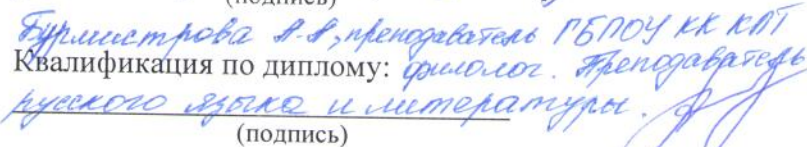 (подпись)
Бурмистрова А.А, преподаватель ГБПОУ КК КПТ
Квалификация по диплому: филолог. Преподаватель
русского языка и литературы.
(подпись)